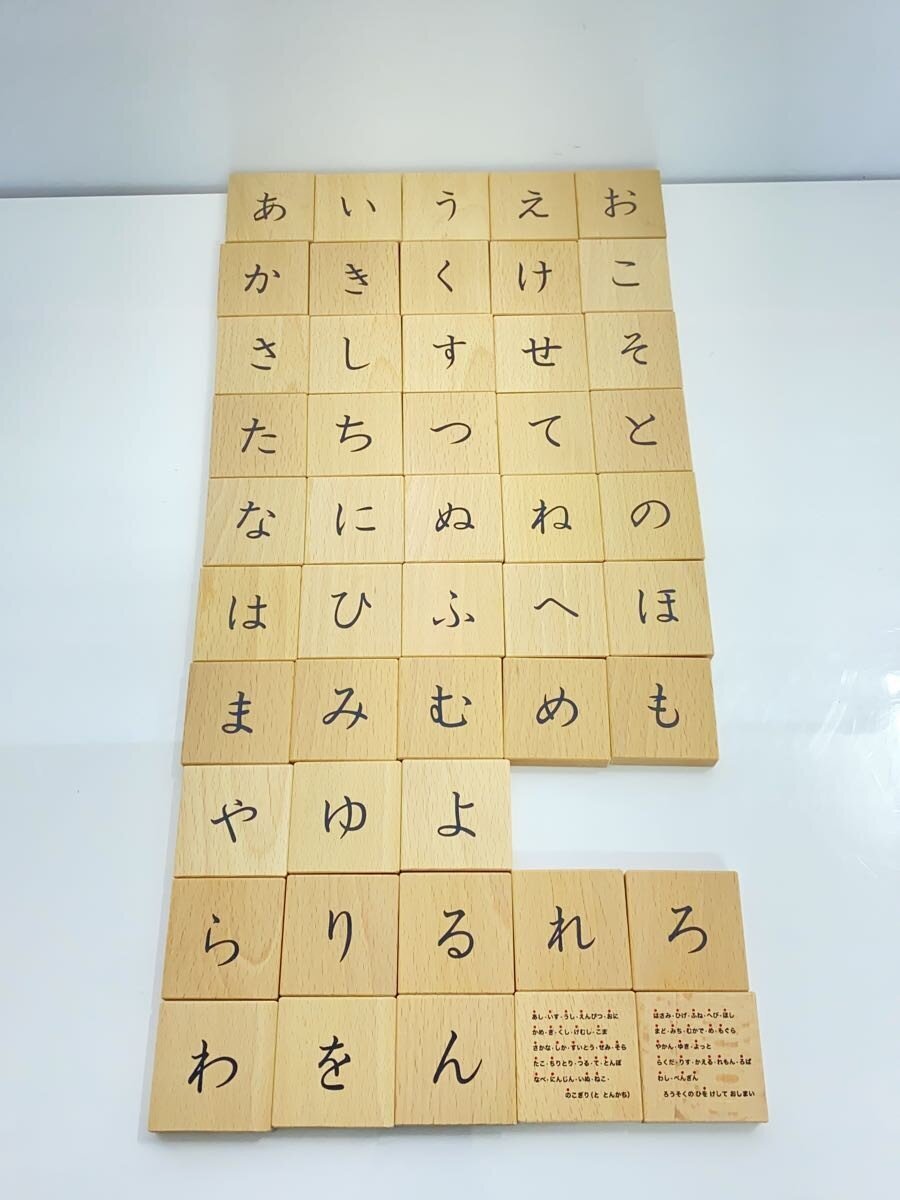 あ い う え お
か き く け こ
さ し す せ そ
た ち つ て と
な に ぬ ね の
は ひ ふ へ ほ
ま み む め も
や ゆ よ
ら り る れ ろ
わ を ん
あし・いす・うし・えんぴつ・おに
かめ・き・くし・けむし・こま
さかな・しか・すいとう・せみ・そら
たこ・ちりとり・つる・て・とんぼ
なべ・にんじん・いぬ・ねこ・
のこぎり(と とんかち)
はさみ・ひげ・ふね・へび・ほし
まど・みち・むかで・め・もぐら
やかん・ゆき・よっと
らくだ・りす・かえる・れもん・ろば
わし・ぺんぎん
ろうそくの ひを けして おしまい